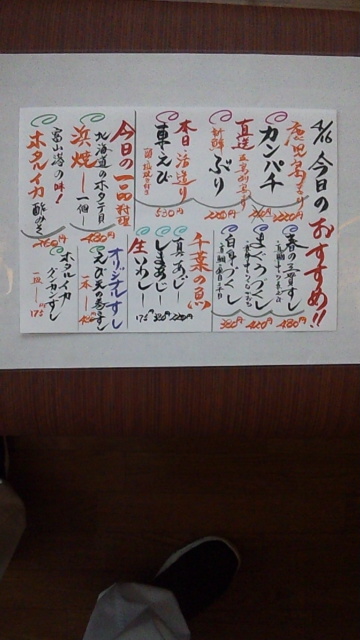 4/16 今日のおすすめ!!
鹿児島より
カンパチ
220円
直送
新鮮 ぶり
220円
本日活造り
車えび
530円
今日の一品料理
北海道のホタテ貝
浜焼 一個
480円
富山湾の味!
ホタルイカ 酢みそ
春の三貫すし
480円
まぐろづくし
420円
白身づくし
380円
千葉の魚
真あじ
しまあじ
生いわし
175円
オリジナルすし
えび天の巻すし
一本
ホタルイカ
グンカンすし
175円